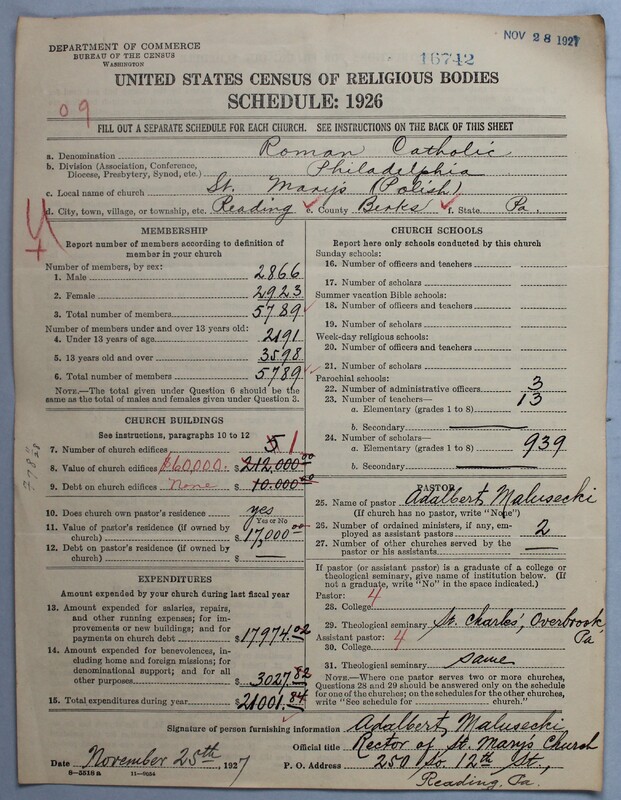 NOV 28 1927
16742
DEPARTMENT OF COMMERCE
BUREAU OF THE CENSUS
WASHINGTON
UNITED STATES CENSUS OF RELIGIOUS BODIES
SCHEDULE: 1926
09
FILL OUT A SEPARATE SCHEDULE FOR EACH CHURCH. SEE INSTRUCTIONS ON THE BACK OF THIS SHEET
a. Denomination Roman Catholic
b. Division (Association, Conference, Diocese, Presbytery, Synod, etc.) Philadelphia
c. Local name of church St. Marys (Polish)
d. City, town, village, or township, etc. Reading e. County Berks f. State Pa.
4
MEMBERSHIP
Report number of members according to definition of
member in your church
Number of members, by sex:
1. Male 2866
2. Female 2923
3. Total number of members 5789
Number of members under and over 13 years old:
4. Under 13 years of age 2191
5. 13 years old and over 3598
6. Total number of members 5789
NOTE.—The total given under Question 6 should be the
same as the total of males and females given under Question 3.
CHURCH BUILDINGS
See instructions, paragraphs 10 to 12
7. Number of church edifices 5 1
8. Value of church edifices $60,000. $212,000.00
9. Debt on church edifices None $10.000
10. Does church own pastor's residence yes
Yes or No
11. Value of pastor's residence (if owned by
church) $17,000.00
12. Debt on pastor's residence (if owned by
church) $ —
EXPENDITURES
Amount expended by your church during last fiscal year
13. Amount expended for salaries, repairs,
and other running expenses; for im-
provements or new buildings; and for
payments on church debt $17974.02
14. Amount expended for benevolences,
including home and foreign missions; for
denominational support; and for all
other purposes $3027.82
15. Total expenditures during year $21001.84
CHURCH SCHOOLS
Report here only schools conducted by this church
Sunday schools:
16. Number of officers and teachers
17. Number of scholars
Summer vacation Bible schools:
18. Number of officers and teachers
19. Number of scholars
Week-day religious schools:
20. Number of officers and teachers
21. Number of scholars
Parochial schools:
22. Number of administrative officers 3
23. Number of teachers— 13
a. Elementary (grades 1 to 8)
b. Secondary
24. Number of scholars—
a. Elementary (grades 1 to 8) 939
b. Secondary
PASTOR
25. Name of pastor Adalbert Malusecki
(If church has no pastor, write "None")
26. Number of ordained ministers, if any, em-
ployed as assistant pastors 2
27. Number of other churches served by the
pastor or his assistants —
If pastor (or assistant pastor) is a graduate of a college or
theological seminary, give name of institution below. (If
not a graduate, write "No" in the space indicated.)
Pastor: 4
28. College
29. Theological seminary St. Charles', Overbrook Pa
Assistant pastor: 4
30. College
31. Theological seminary same
NOTE.—Where one pastor serves two or more churches,
Questions 28 and 29 should be answered only on the schedule
for one of the churches; on the schedules for the other churches,
write "See schedule for church."
Signature of person furnishing information Adalbert Malusecki
Official title Rector of St. Marys Church
Date November 25th, 1927 P. O. Address 250 So. 12th St.,
Reading, Pa.
8—5518 a 11—8034